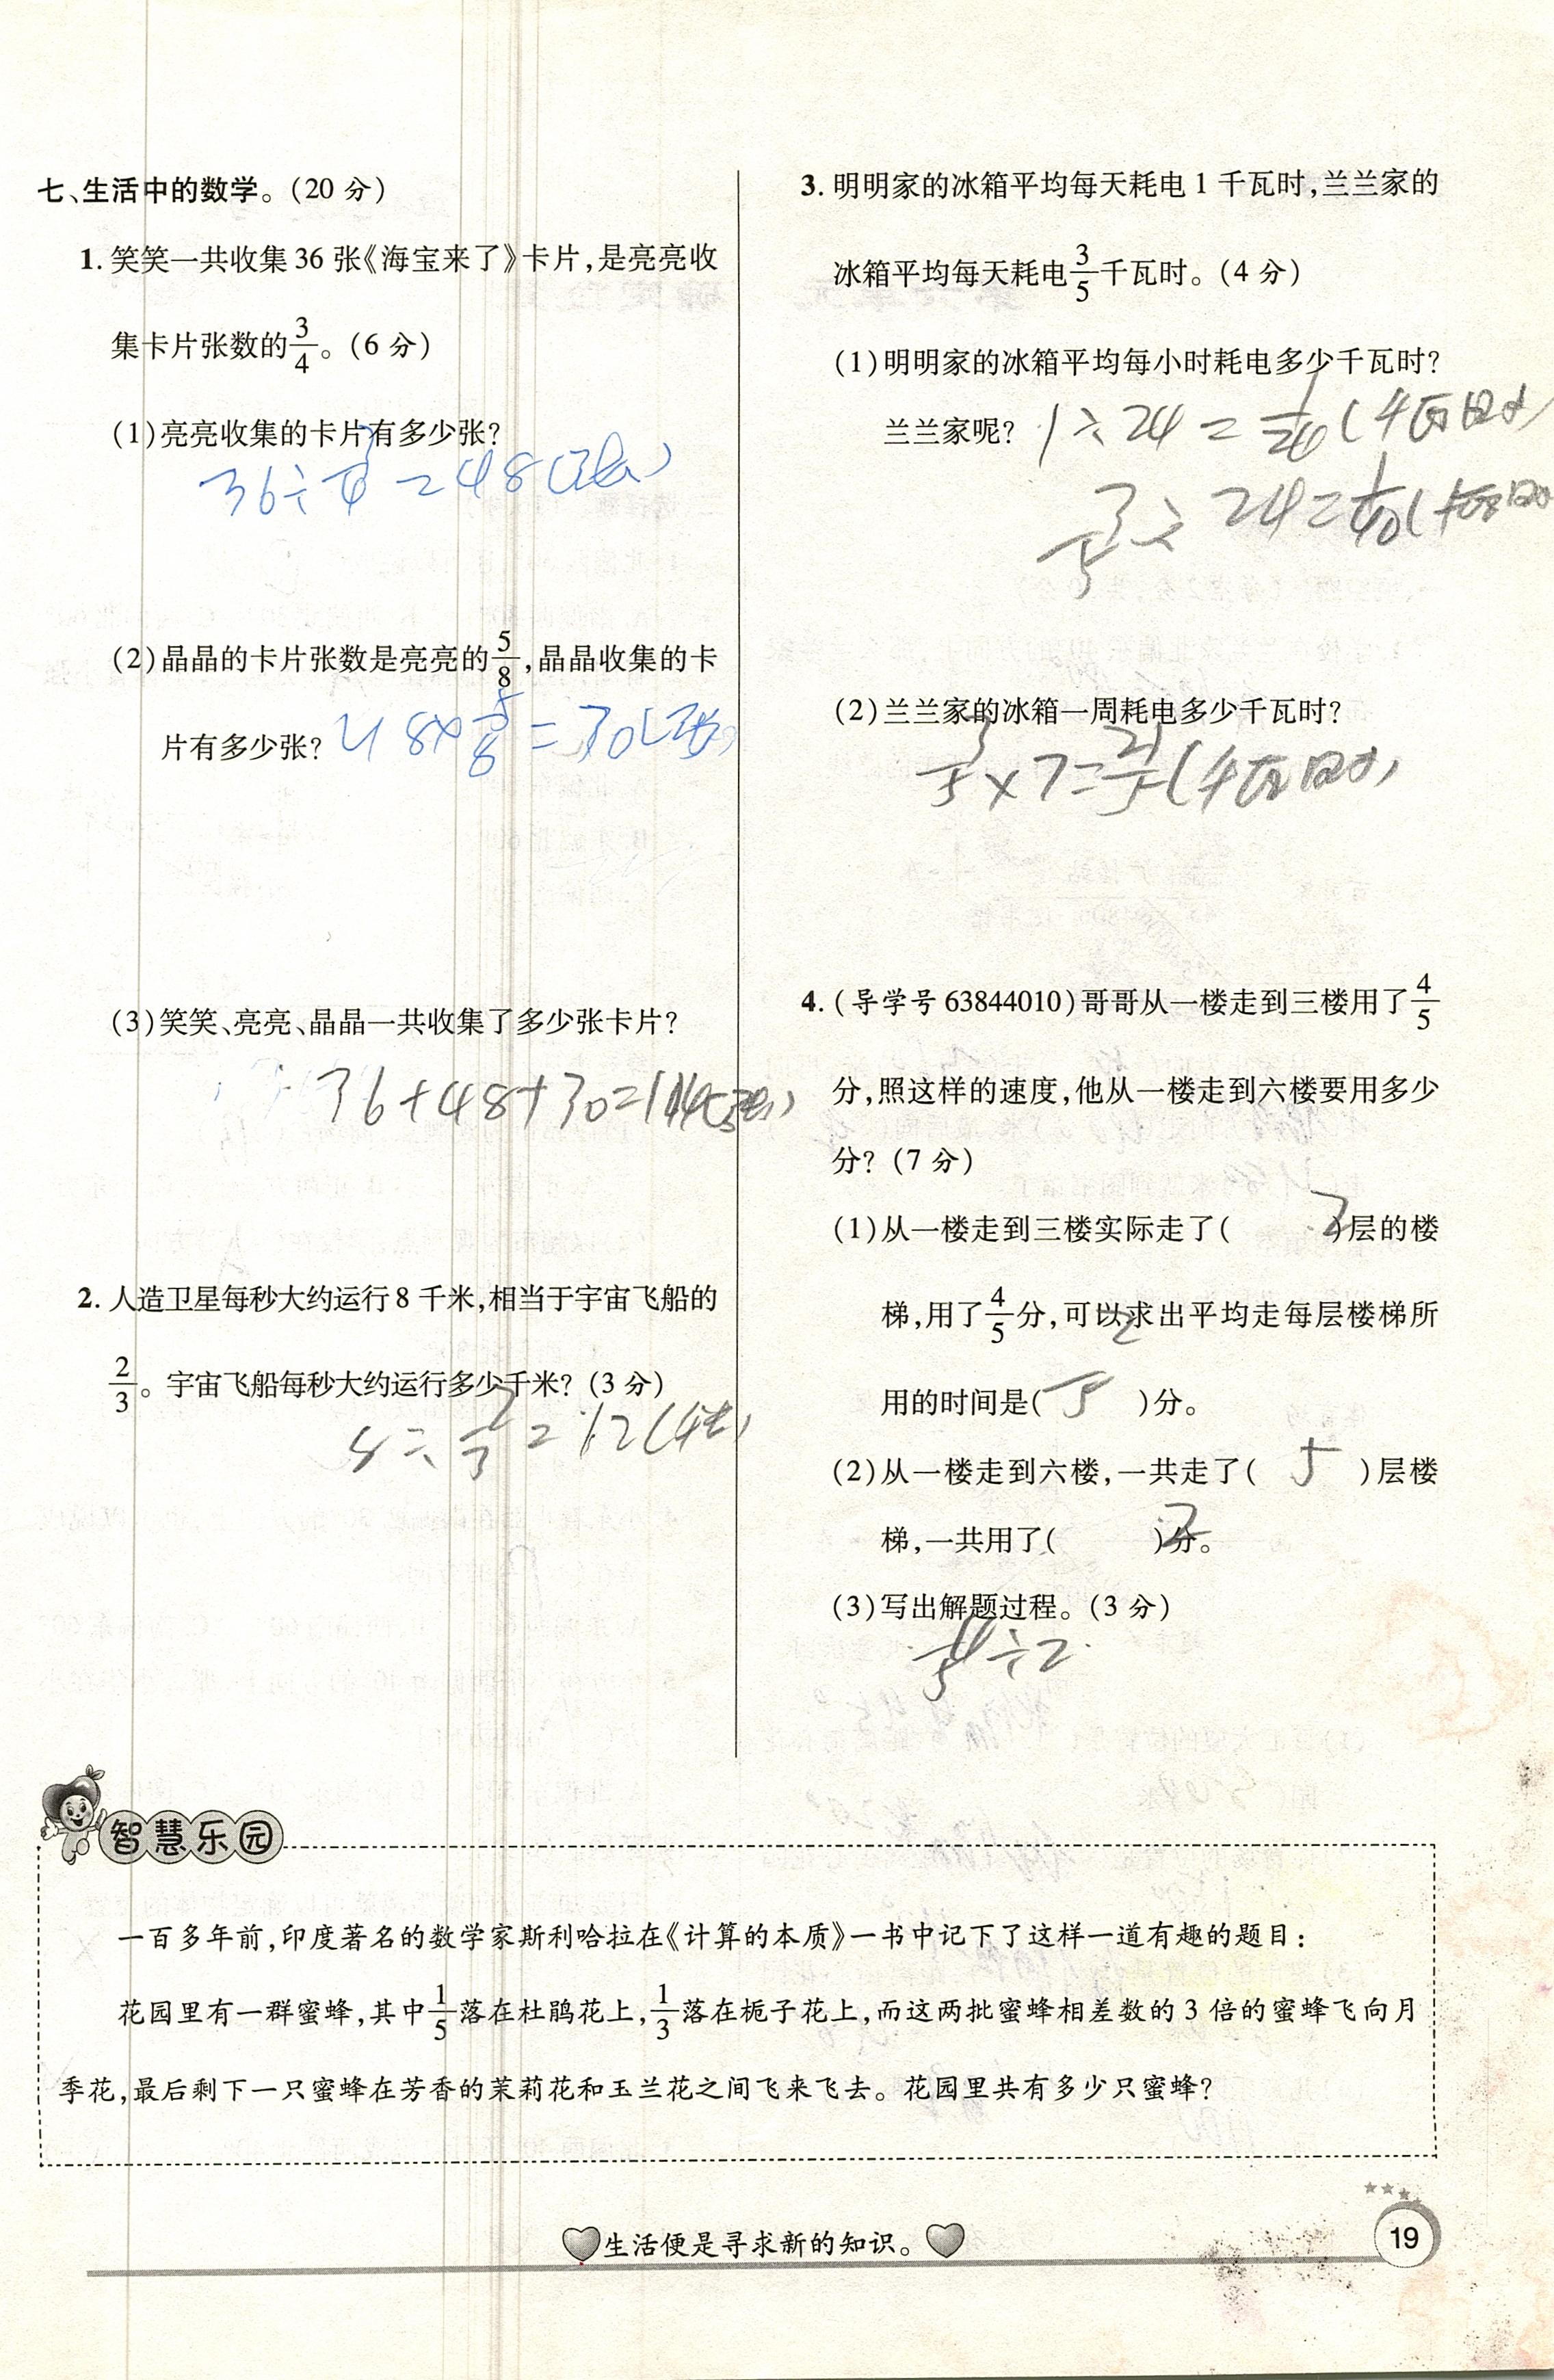 七、生活中的数学。(20 分)
1. 笑笑一共收集 36 张《海宝来了》卡片,是亮亮收
集卡片张数的3/4。(6 分)
(1)亮亮收集的卡片有多少张?
36÷3/4=48(张)
(2)晶晶的卡片张数是亮亮的5/8,晶晶收集的卡
片有多少张? 48×5/8=30(张)
(3)笑笑、亮亮、晶晶一共收集了多少张卡片?
36+48+30=114(张)
2. 人造卫星每秒大约运行 8 千米,相当于宇宙飞船的
2/3。宇宙飞船每秒大约运行多少千米? (3 分)
8÷2/3=12(千米)
3. 明明家的冰箱平均每天耗电 1 千瓦时,兰兰家的
冰箱平均每天耗电3/5千瓦时。(4 分)
(1)明明家的冰箱平均每小时耗电多少千瓦时?
兰兰家呢? 1÷24=1/24(千瓦时)
3/5÷24=1/40(千瓦时)
(2)兰兰家的冰箱一周耗电多少千瓦时?
3/5×7=21/5(千瓦时)
4. (导学号 63844010)哥哥从一楼走到三楼用了4/5
分,照这样的速度,他从一楼走到六楼要用多少
分? (7 分)
(1)从一楼走到三楼实际走了( 2 )层的楼
梯,用了4/5分,可以求出平均走每层楼梯所
用的时间是( 2/5 )分。
(2)从一楼走到六楼,一共走了( 5 )层楼
梯,一共用了( 2 )分。
(3)写出解题过程。(3 分)
4/5÷2
智慧乐园
一百多年前,印度著名的数学家斯利哈拉在《计算的本质》一书中记下了这样一道有趣的题目:
花园里有一群蜜蜂,其中1/5落在杜鹃花上,1/3落在栀子花上,而这两批蜜蜂相差数的 3 倍的蜜蜂飞向月
季花,最后剩下一只蜜蜂在芳香的茉莉花和玉兰花之间飞来飞去。花园里共有多少只蜜蜂?
生活便是寻求新的知识。
19